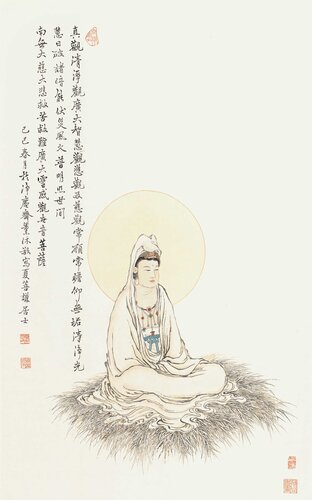 真觀清淨觀廣大智慧觀悲觀及慈觀常願常瞻仰無垢清淨光
慧日破諸暗能伏災風火普明照世間
南無大慈大悲救苦救難廣大靈感觀世音菩薩
己巳春月於淨廬齋薰沐敬寫夏居士